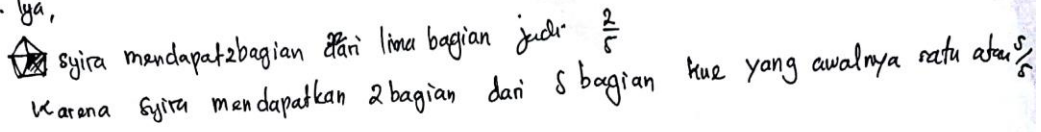 Iya,
syira mendapat 2 bagian dari lima bagian jadi 2/5
karena syira mendapatkan 2 bagian dari 5 bagian kue yang awalnya satu atau 5/5